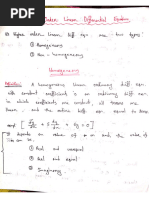 Order Linear Differential Equation
Higher order linear diff eqn are two types
① Homogeneous
② Non-homogeneous
Homogeneous
Definition: A homogeneous linear ordinary diff eqn
with constant coefficients is an ordinary diff eqn
in which coefficients are constant, all terms are
linear, and the entire differ. eqn is equal to zero
depends on value of
① Real and unequal
② Real and equal
③ Imaginary